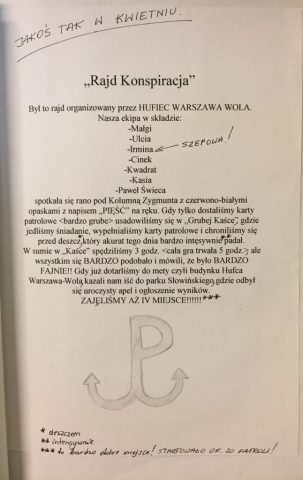 JAKOŚ TAK W KWIETNIU.
„Rajd Konspiracja”
Był to rajd organizowany przez HUFIEC WARSZAWA WOLA.
Nasza ekipa w składzie:
-Małgi
-Ulcia
-Irmina SZEFOWA!
-Cinek
-Kwadrat
-Kasia
-Paweł Świeca
spotkała się rano pod Kolumną Zygmunta z czerwono-białymi
opaskami z napisem „PIĘŚĆ” na ręku. Gdy tylko dostaliśmy karty
patrolowe <bardzo grube> usadowiliśmy się w „Grubej Kaśce”, gdzie
jedliśmy śniadanie, wypełnialiśmy karty patrolowe i chroniliśmy się
przed deszcz,* który akurat tego dnia bardzo intęsywnie** padał.
W sumie w „Kaśce” spędziliśmy 3 godz. <cała gra trwała 5 godz.> ale
wszystkim się BARDZO podobało i mówili, że było BARDZO
FAJNIE!! Gdy już dotarliśmy do mety czyli budynku Hufca
Warszawa-Wola kazali nam iść do parku Słowińskiego,gdzie odbył
się uroczysty apel i ogłoszenie wyników.
ZAJĘLIŚMY AŻ IV MIEJSCE!!!!!!***
* deszczem
** intensywnie
*** to bardzo dobre miejsce! STARTOWAŁO OK. 20 PATROLI!